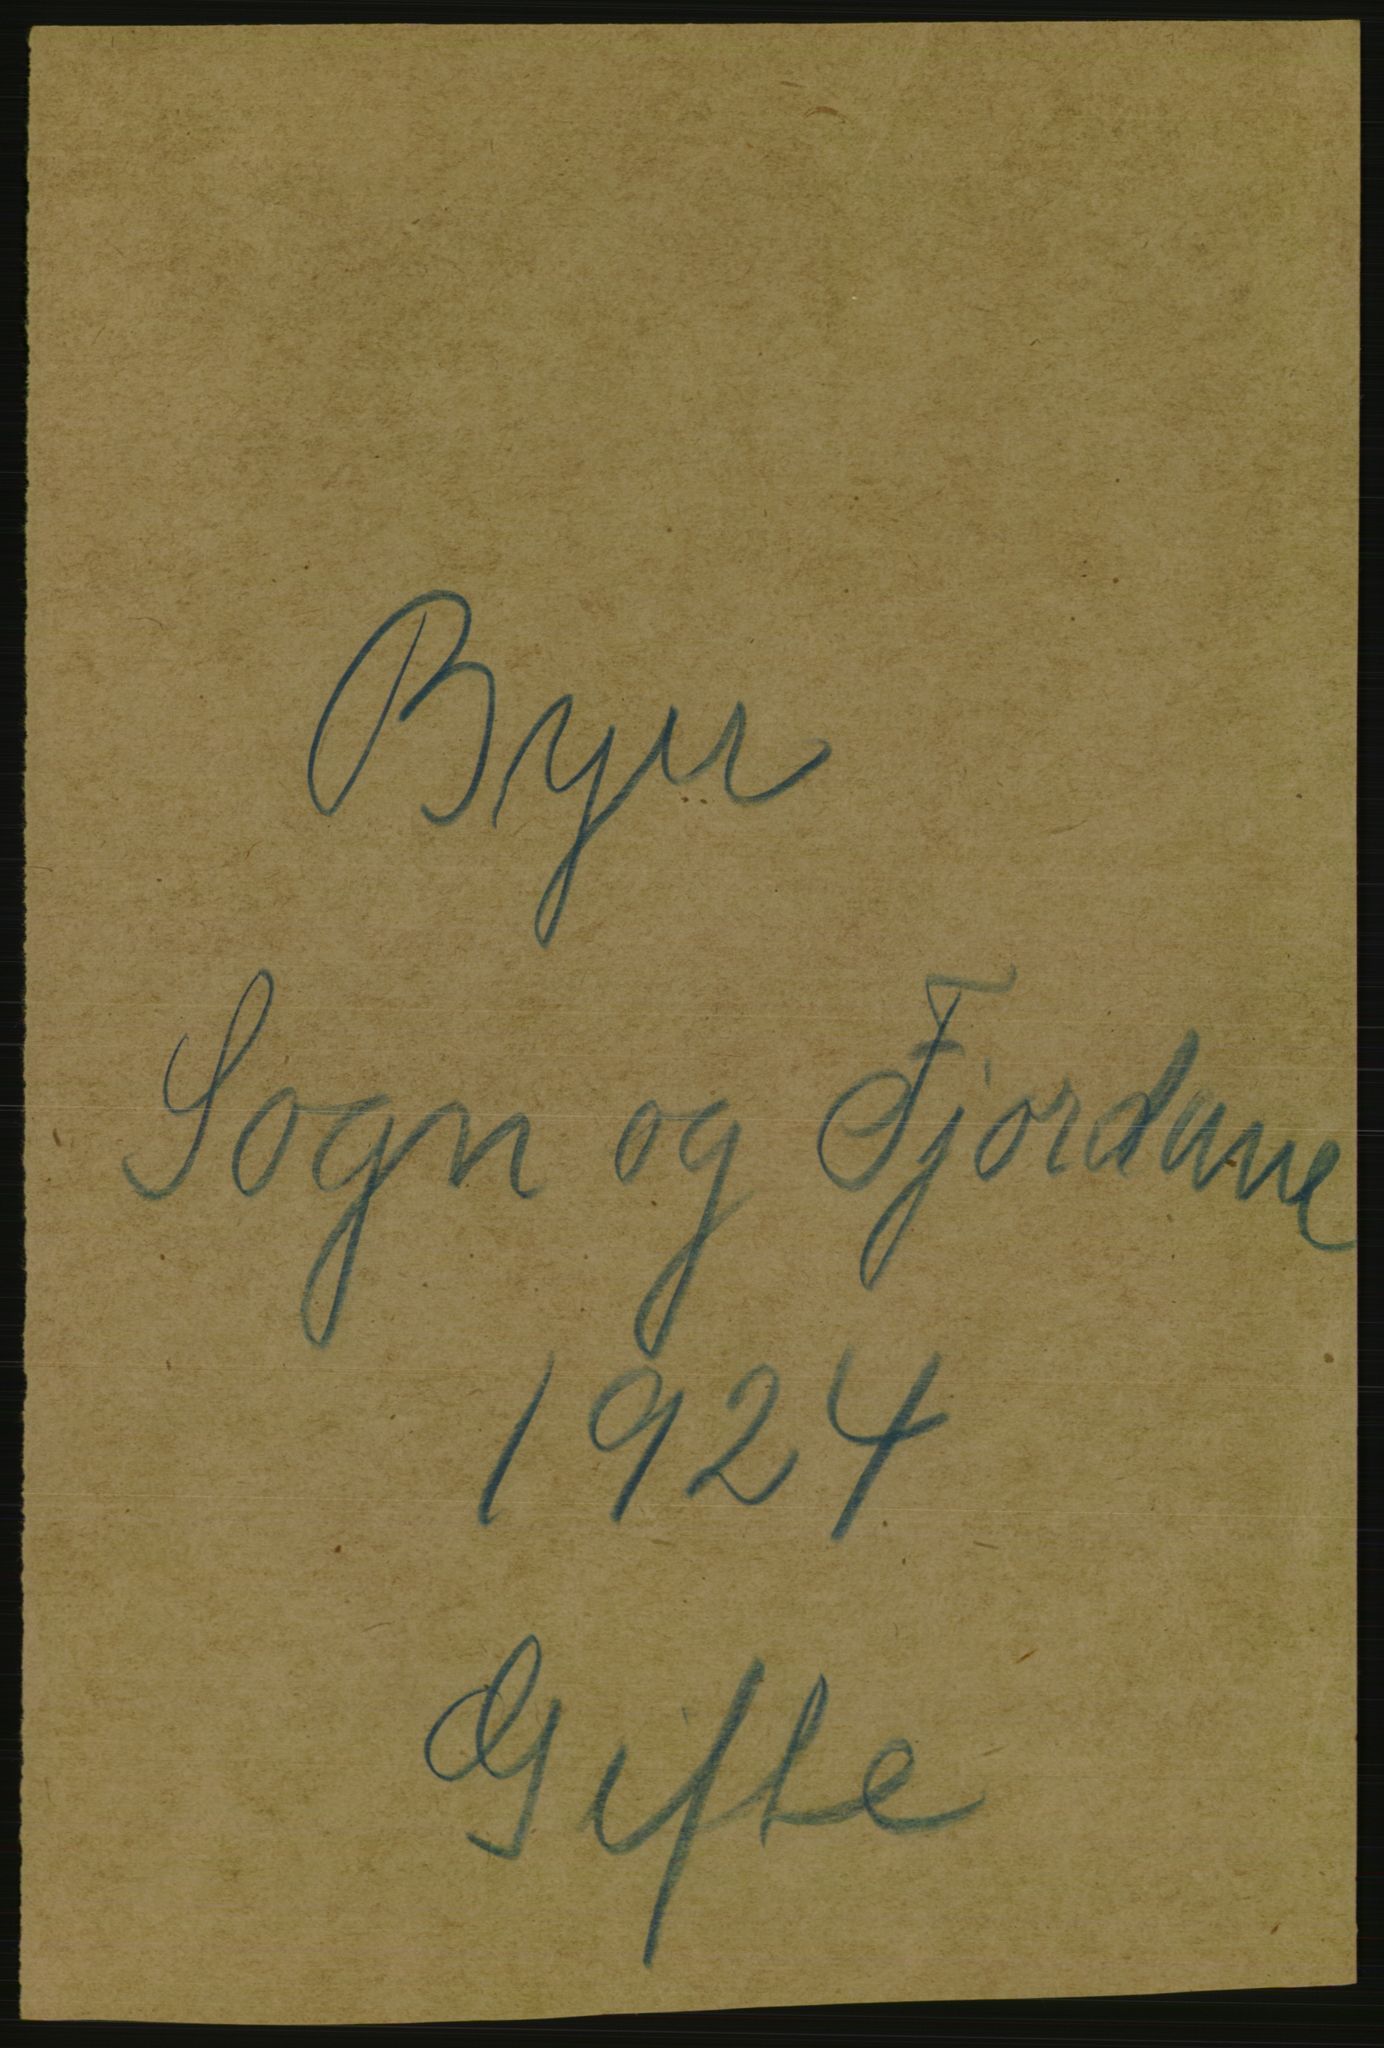 Byer
Sogn og Fjordane
1924
Gifte